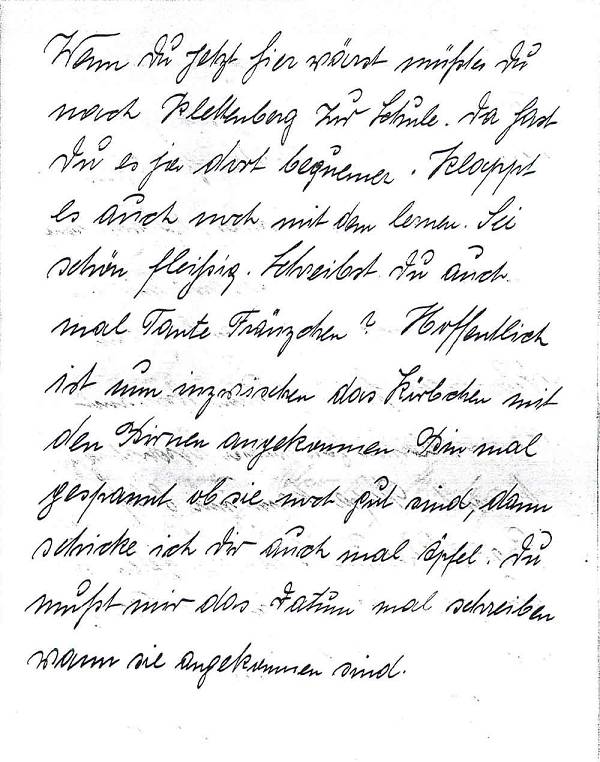 Wenn du jetzt hier wärst müßtes du
nach Klettenberg zur Schule. Da hast
du es ja dort bequemer. Klappt
es auch noch mit dem lernen. Sei
schön fleißig. Schreibst du auch
mal Tante Fränzchen? Hoffentlich
ist nun inzwischen das Körbchen mit
den Birnen angekommen Bin mal
gespannt ob sie noch gut sind, dann
schicke ich dir auch mal Äpfel. Du
mußt mir das Datum mal schreiben
wann sie angekommen sind.